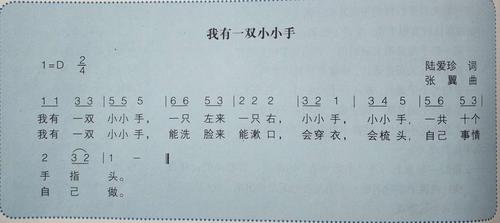 我有一双小小手
1=D 2/4
陆爱珍 词
张翼 曲
1 1 3 3 | 5 5 5 | 6 6 5 3 | 2 2 2 | 3 2 1 | 3 4 5 | 5 6 5 3 |
我有 一双 小小 手, 一只 左来 一只 右, 小小 手, 小小 手, 一共 十个
我有 一双 小小 手, 能洗 脸来 能漱 口, 会穿 衣, 会梳 头, 自己 事情
2 3 2 | 1 - ‖
手 指 头。
自 己 做。